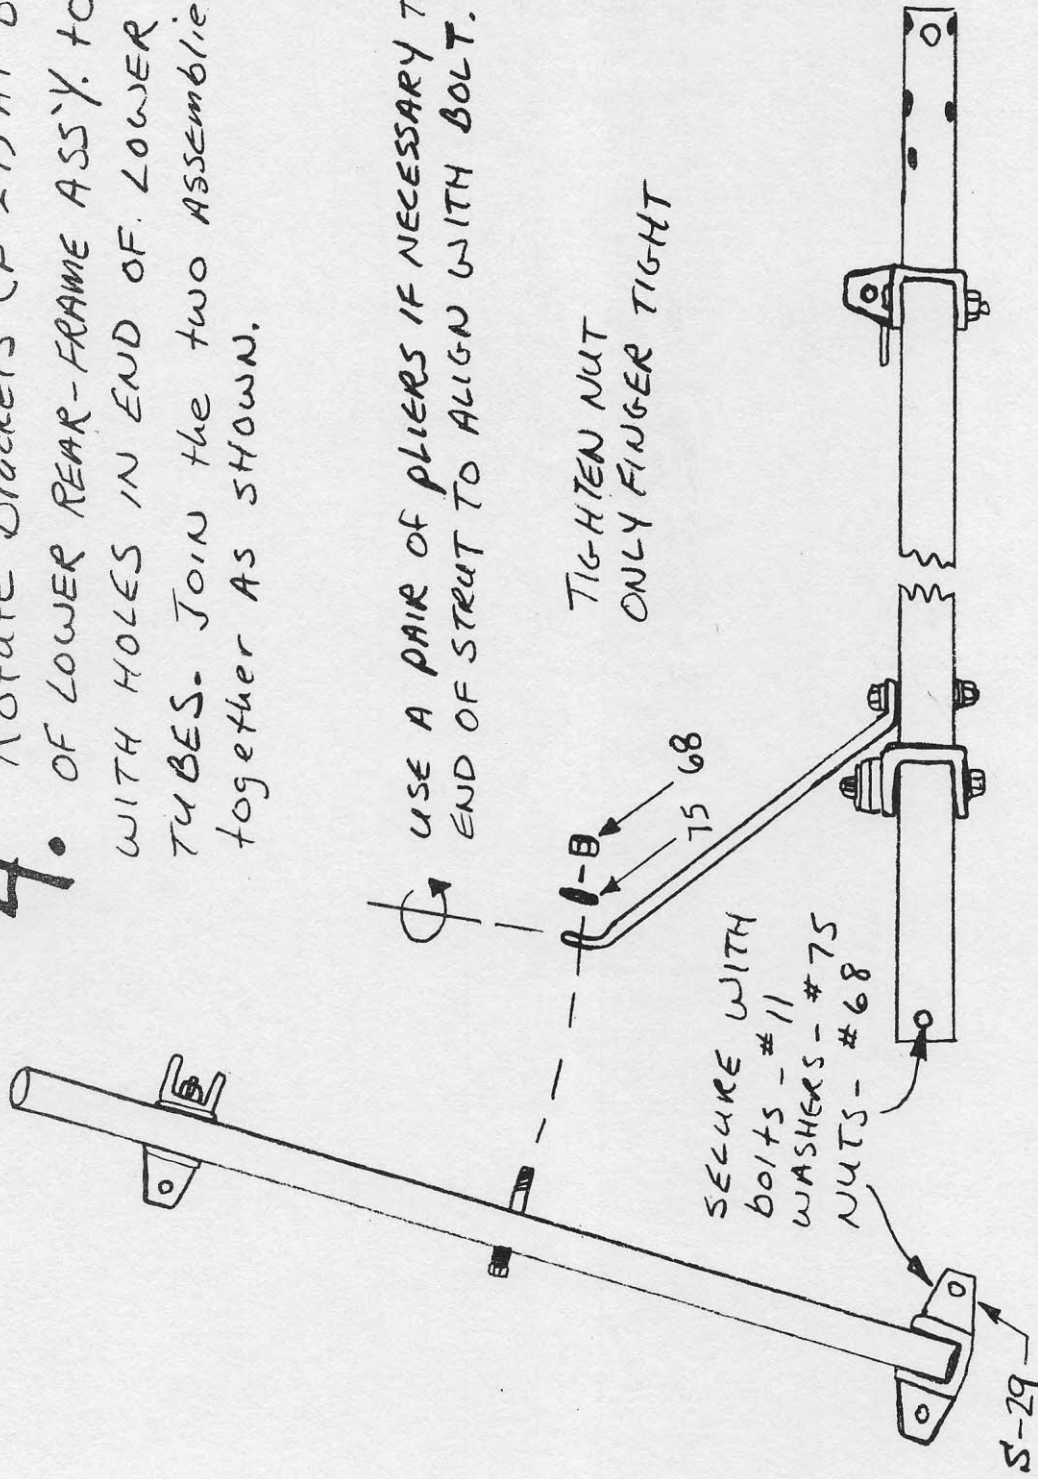 4. Rotate Brackets
OF LOWER REAR-FRAME ASS'Y. to
WITH HOLES IN END OF LOWER
TUBES. JOIN the two ASSEmblie
together AS SHOWN.
USE A PAIR OF PLIERS IF NECESSARY T
END OF STRUT TO ALIGN WITH BOLT.
TIGHTEN NUT
ONLY FINGER TIGHT
68
75
SECURE WITH
bolts - #11
WASHERS - #75
NUTS - #68
S-29